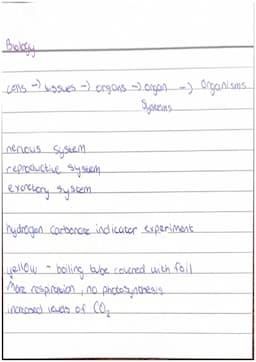 Biology
cells → tissues → organs → organ systems → organisms
nervous system
reproductive system
excretory system
hydrogen carbonate indicator experiment
yellow - boiling tube covered with foil
more respiration, no photosynthesis
increased levels of CO₂